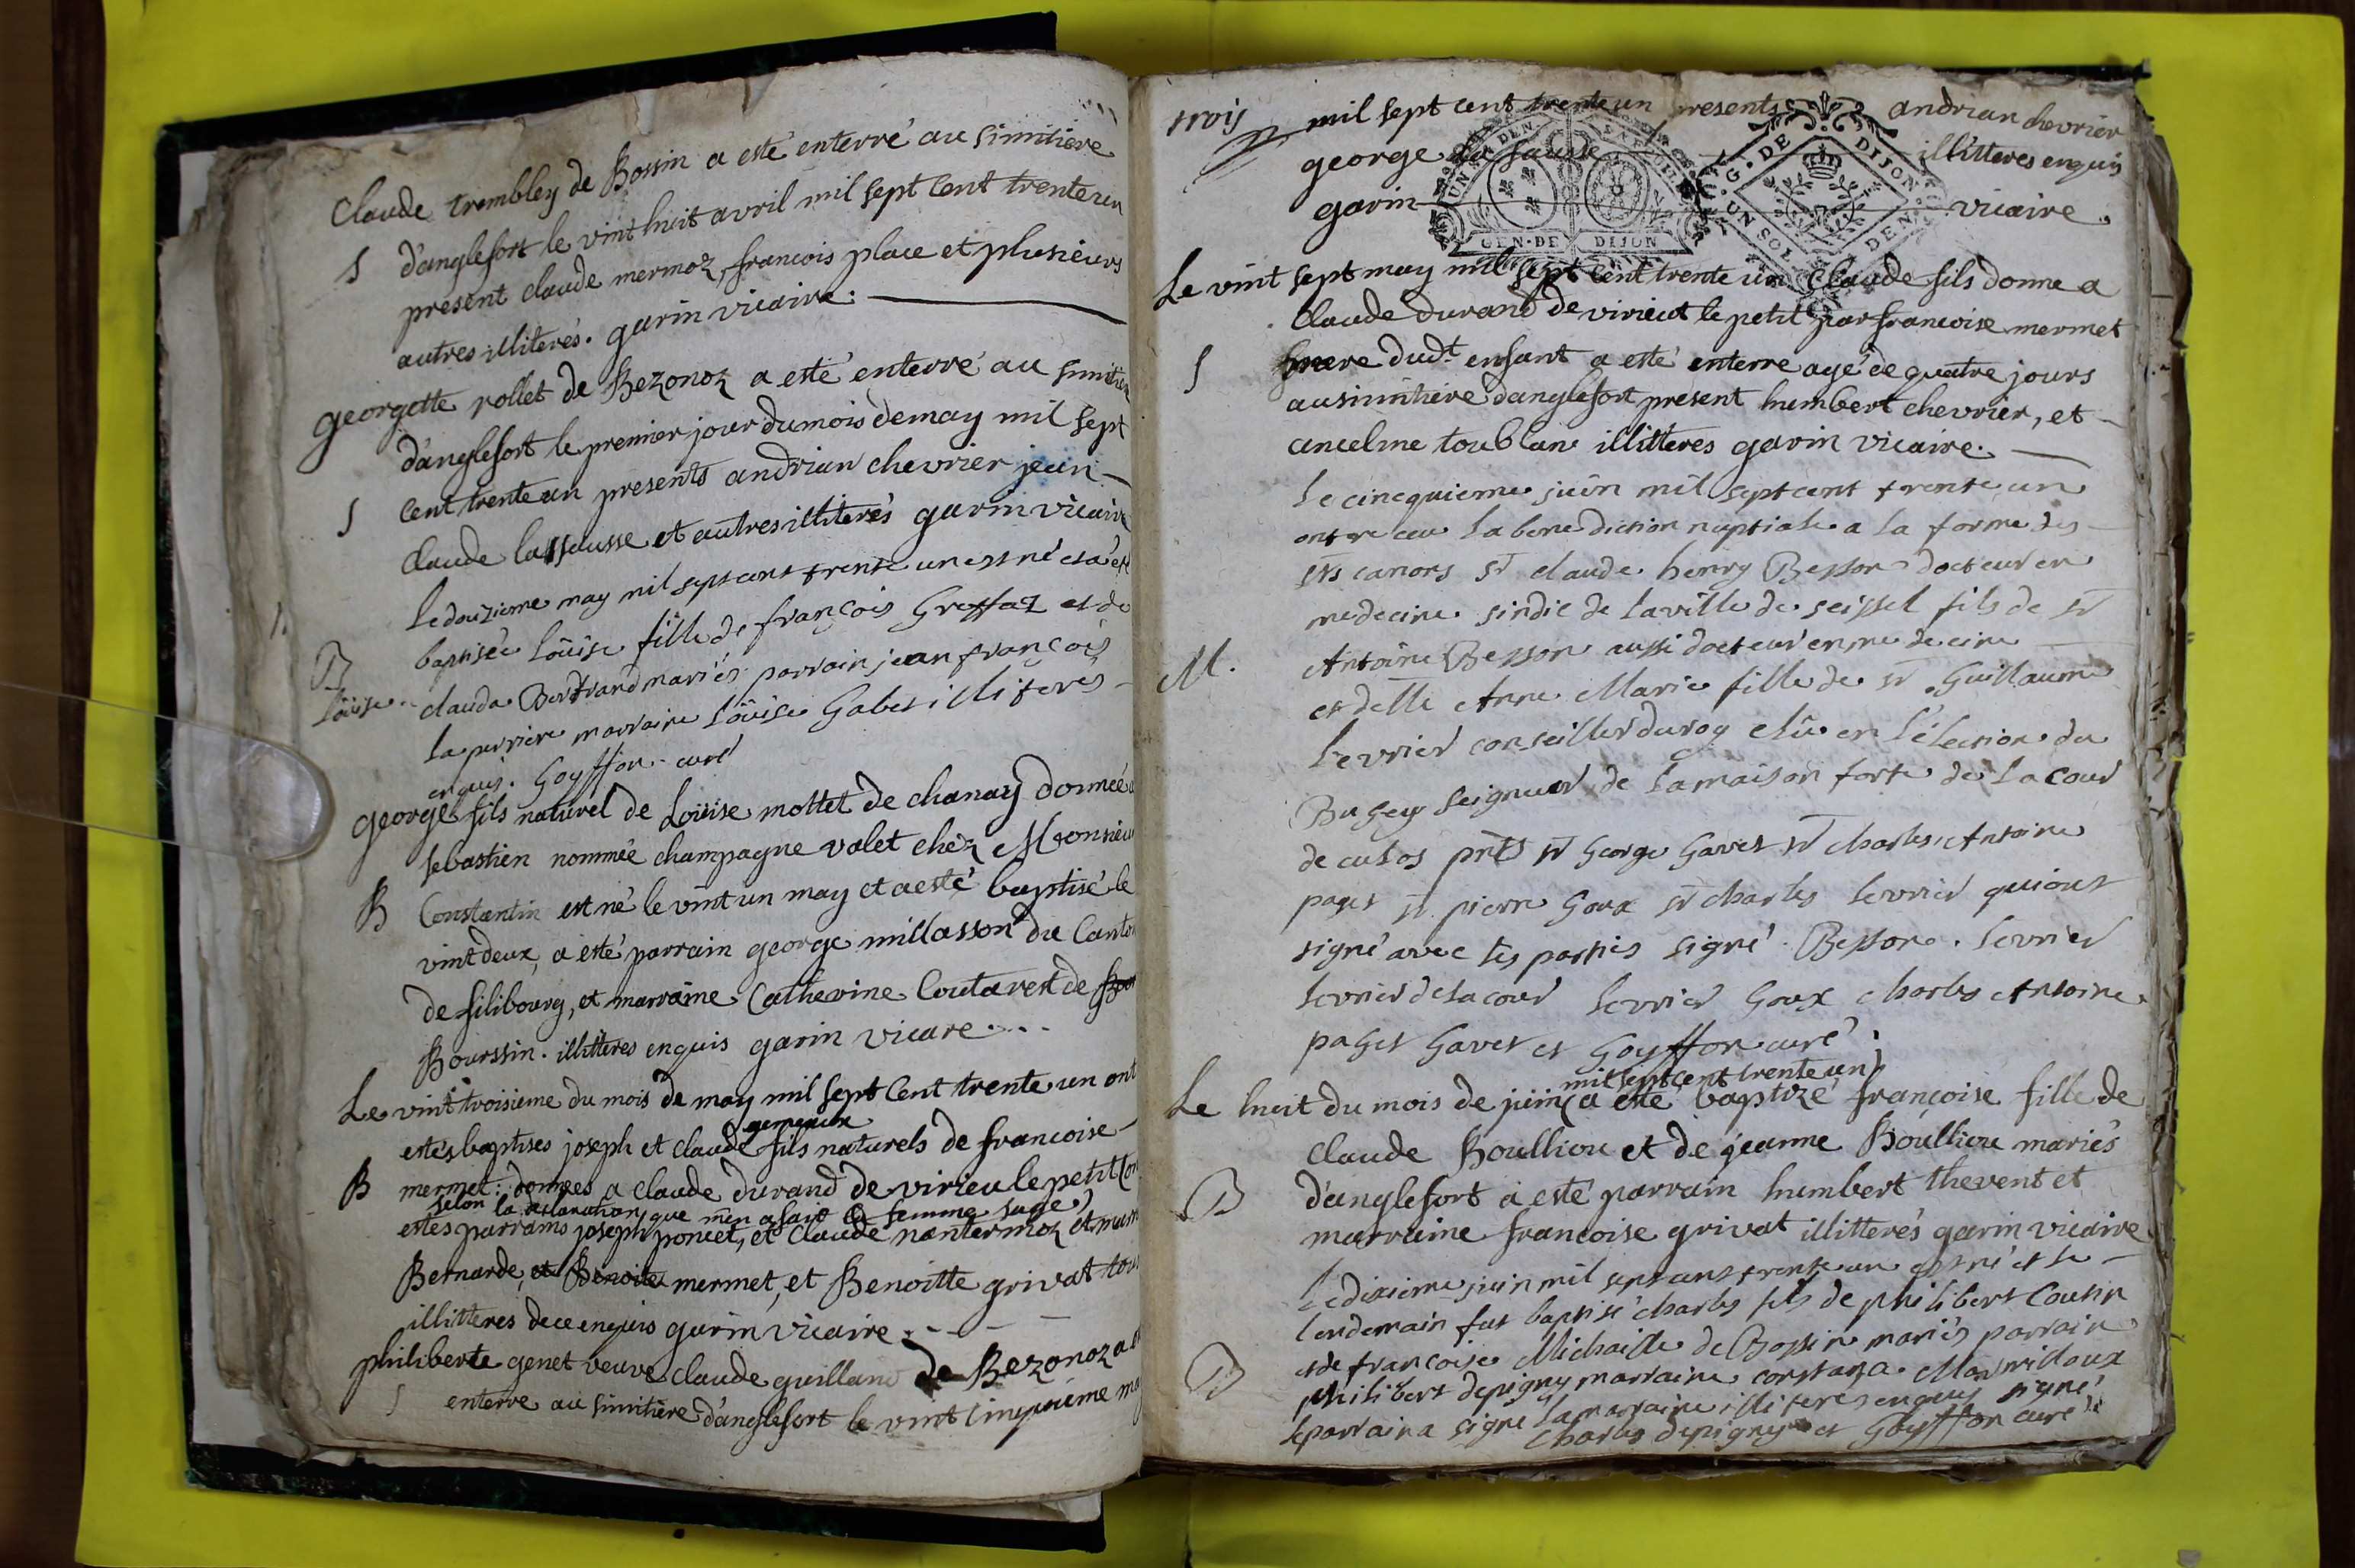 Claude trembley de Bossin a esté enterré au simitiere
S d'anglefort le vint huit avril mil sept cent trente un
present claude mermoz, francois place et plusieurs
autres illiterés. garin vicaire.
georgette rollet de Bezonoz a esté enterré au simitiere
d'anglefort le premier jour du mois de may mil sept
S cent trente un presents andrian chevrier jean
claude la sausse et autres illiterés garin vicaire
Le douzieme may mil sept cent trente un est né et a été
B baptisée Loüise fille de françois Greffaz et de
Loüise clauda Bertrand mariés parrain jean françois
la perriere marraine Loüise Gabet illiteres
enquis. Goyffon curé
george fils naturel de Loüise mottet de chanay donnée a
sebastien nommée champagne valet chez Monsieur
B Constantin est né le vint un may et a esté baptisé le
vint deux, a esté parrain george millasson du Canton
de filibourg, et marraine Catherine Coutarest de
Bourssin. illitteres enquis garin vicare.
Le vint troisieme du mois de may mil sept Cent trente un ont
gemeaux
estés baptises joseph et claude fils naturels de francoise
B mermet: données a claude durand de virieu le petit
selon la declaration que m'en a fait la femme sage
estes parrains joseph poncet, et Claude nantermoz et
Bernarde, et Benoite mermet, et Benoitte grivat
illitteres de ce enquis garin vicaire.
philiberte genet veuve claude guilland de Bezonoz a
S enterre au simitiere d'anglefort le vint cinquieme
trois
mil sept cent trente un presents andrian chevrier
george la sausse illitteres enquis
garin vicaire.
GEN. DE DIJON
G. DE DIJON
UN SOL DEN.
Le vint sept may mil sept Cent trente un Claude fils donne a
Claude durand de virieut le petit par francoise mermet
S mere dudt enfant a esté enterre agé de quatre jours
au simitiere d'anglefort present humbert chevrier, et
anceline toublan illitteres garin vicaire.
Le cincquieme juin mil sept cent trente un
ont receu la benediction nuptiale a la forme des
sts canons sr claude henry Besson docteur en
medecine sindic de la ville de seissel fils de sr
M. Antoine Besson aussi docteur en medecine
et delle Anne Marie fille de sr Guillaume
Levrier conseiller du roy elû en l'élection du
Bugey seigneur de la maison forte de La Cour
de culos pnts sr George Gavet sr charles Antoine
paget sr pierre Goux sr charles Levrier qui ont
signé avec les parties signé Besson. Levrier
Levrier de la cour Levrier Goux charles Antoine
paget Gavet et Goyffon curé.
mil sept cent trente un
Le huit du mois de juin a esté baptizé françoise fille de
claude Boulliou et de jeanne Boulliou mariés
B d'anglefort a esté parrain humbert thevent et
marraine francoise grivat illitterés garin vicaire
Le dixieme juin mil sept cent trente un est né et le
lendemain fut baptisé charles fils de philibert Cousin
et de françoise Michaille de Bossin mariés parrain
B philibert depigny marraine constanza
le parrain a signé la marraine illiteres enquis signé
charles depigny et Goyffon curé